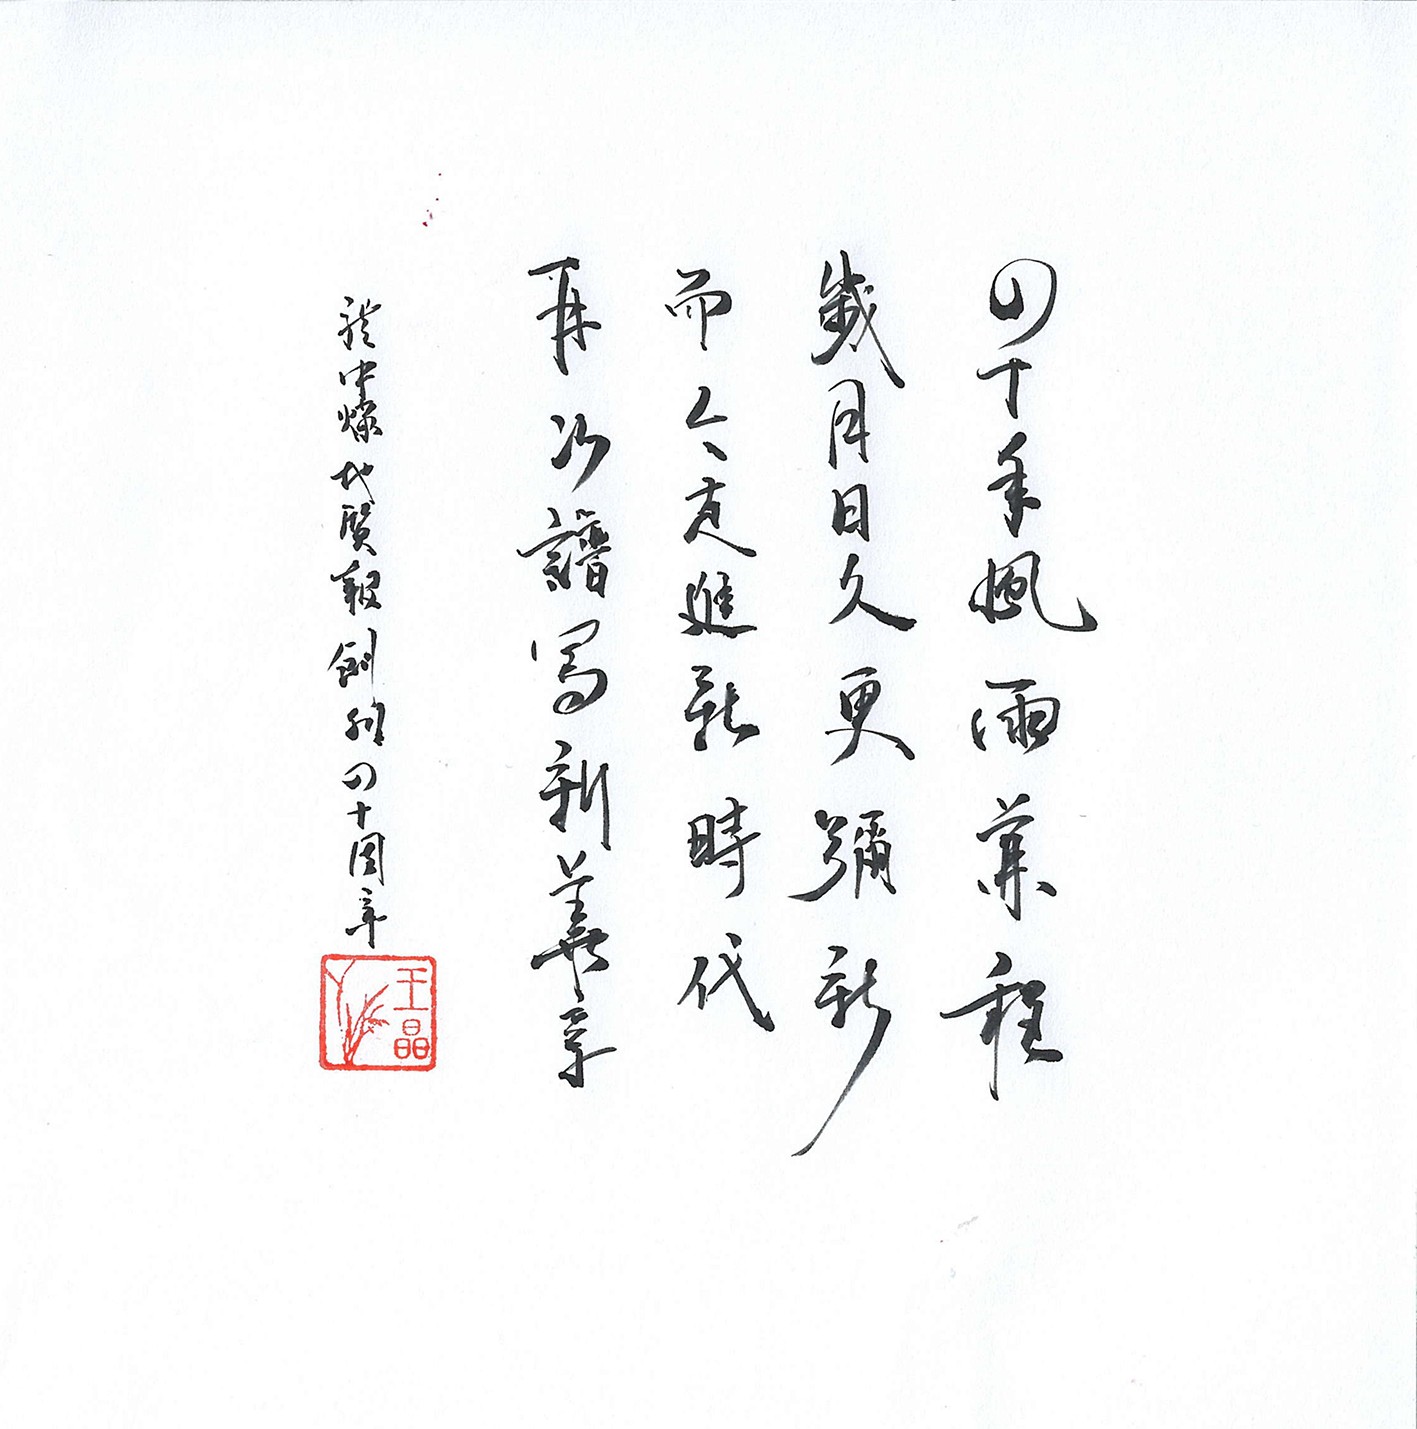 四十年風雨兼程
歲月日久更彌新
而今走進新時代
再次譜寫新華章
於中煤地質報創刊四十周年
王晶